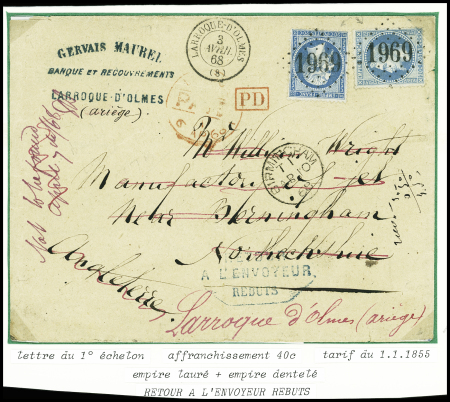 GERVAIS MAUREL
BANQUE ET RECOUVREMENTS
LARROQUE-D'OLMES
(ariége)
LARROQUE-D'OLMES
3
AVRIL
68
(8)
1969
1969
PD
Wright
Manufactory of Jet
Near Birmingham
BIRMINGHAM
Angleterre
A L'ENVOYEUR
REBUTS
Larroque d'Olmes (ariège)
lettre du 1° écheton affranchissement 40c tarif du 1.1.1855
empire tauré + empire denteté
RETOUR A L'ENVOYEUR REBUTS